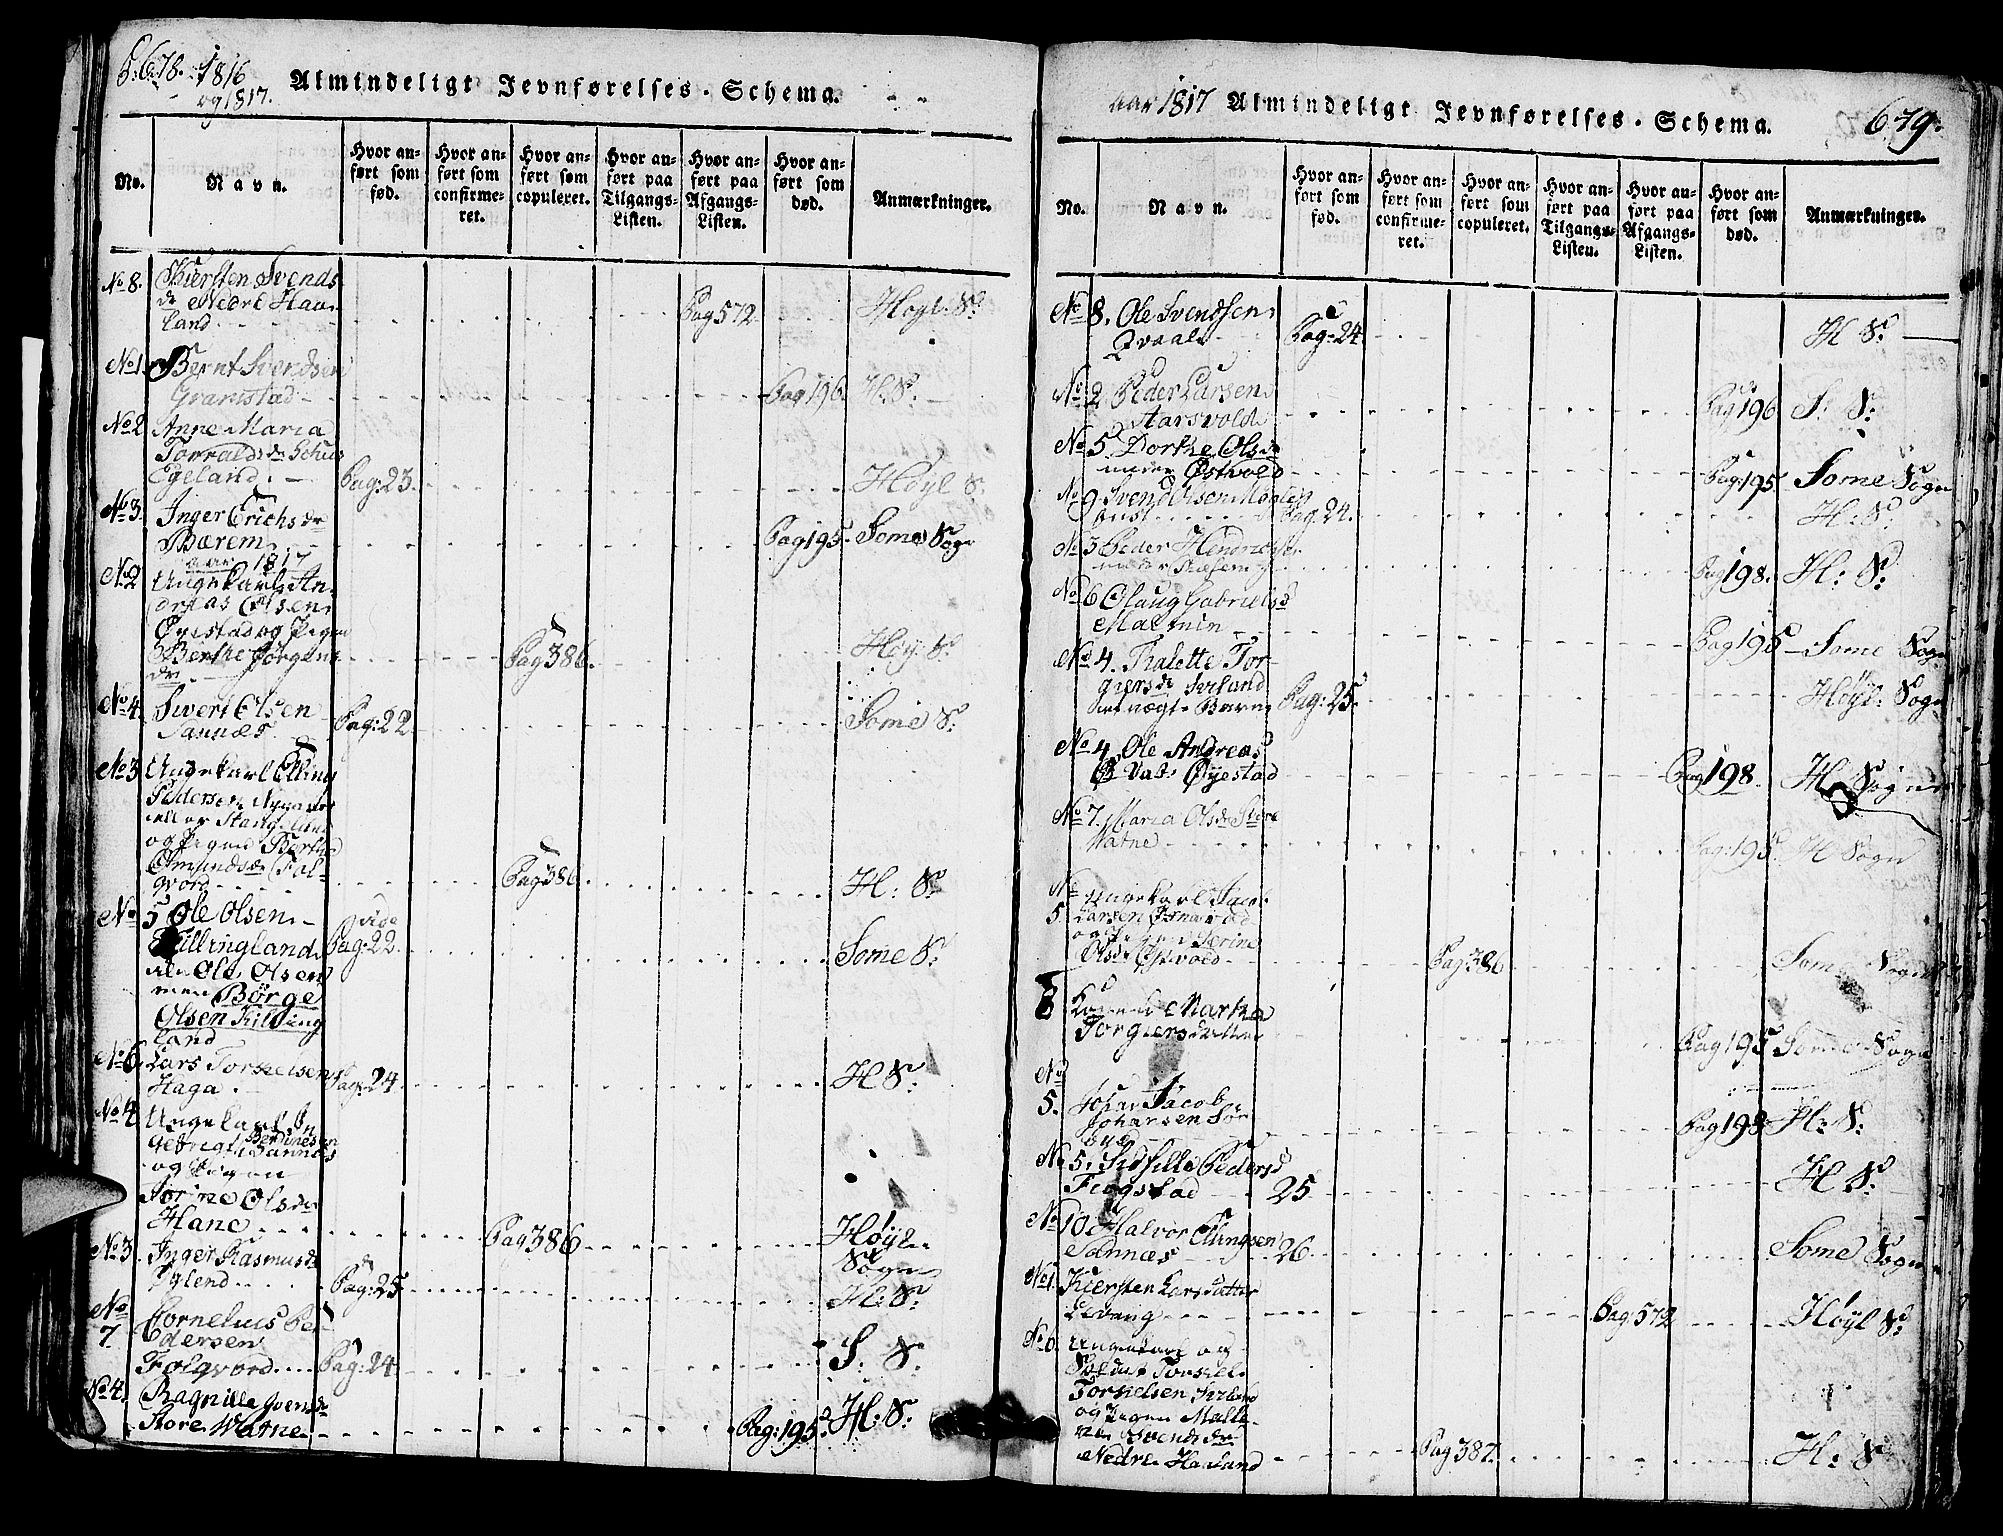 P: 678. 1816
og 1817.
Almindeligt Jevnførelses-Schema.
No.
Navn.
Hvor an-
ført som
fød.
Hvor an-
ført som
confirme-
ret.
Hvor an-
ført som
copuleret.
Hvor an-
ført paa
Tilgangs-
Listen.
Hvor an-
ført paa
Afgangs-
Listen.
Hvor an-
ført som
død.
Anmærkninger.
No 8. Kiersten Svends
dr Nedre Haa-
land Pag 572 Høyl. S:
No 1. Bernt Svendsen
Gramstad Pag 196. H: S:
No 2 Anne Maria
Torvalds dr Schus
Egeland. Pag: 23. Høyl S:
No 3. Inger Erichs dr
Bærem Pag 195. Some Sogn
aar 1817
No 2 Ungekarl An-
dreas Olsen
Øyestad og Pigen
Berthe Jørgens
dr Pag 386. Høy. S:
No 4. Sivert Olsen
Sannæs Pag: 22 Some S:
No 3 Ungekarl Elling
Pedersen
eller Stangeland
og Pigen Berthe
Amundsdr Fol-
qvord Pag 386. H: S:
No 5 Ole Olsen vide
Killingland Pag: 22. Some S:
Ole Olsen
men Børge
Olsen Killing
land
No 6. Lars Torkelsen
Haga. Pag: 24 H S:
No 4 Ungekarl In
gebrigt Berdinesen
Sannæs
og Pigen
Sørine Olsdr
Hane Pag 386 Høyl.
Sogn
No 3. Inger Rasmusdr
Eglend Pag: 25 H: S:
No
7 Cornelius Pe-
dersen
Folqvord Pag: 24 S: S:
No 4. Ragnille Svensdr
Store Watne Pag: 195. H: S:
Aar 1817 Almindeligt Jevnførelses-Schema. 679.
No.
Navn.
Hvor an-
ført som
fød.
Hvor an-
ført som
confirme-
ret.
Hvor an-
ført som
copuleret.
Hvor an-
ført paa
Tilgangs-
Listen.
Hvor an-
ført paa
Afgangs-
Listen.
Hvor an-
ført som
død.
Anmærkninger.
No 8. Ole Svendsen
Qvaal Pag: 24 H S:
No 2 Peder Larsen
Aarsvold Pag 196 S: S:
No 5 Dorthe Olsdr
Østvold Pag: 195 Some Sogn
No 9 Svend Olsen
Pag. 24. H: S:
No 3 Peder Hendrichsen
Pag 198. H: S:
No 6 Olaug Gabrielsd
Malmin Pag 195 Some Sogn
No 4. Thalette Tor-
giersdr Serland
uægte Barn Pag: 25. Høyl: Sogn
No 4. Ole Andreas
Øyestad Pag 198. H: Sogn
No 7. Maria Olsdr Store
Watne Pag: 195. H Sogn
No
5. Ungekarl Jacob
Larsen
og Pigen Serine
Olsdr Østvold Pag: 386 Some Sogn
8 Martha
Torgiersdatter Pag 195 Some Sogn
No
5. Jacob
Johansen Sør
bye Pag 198 H: S:
No 5. Sidsille Pedersd
Fiogstad 25 H S:
No 10 Halvor Ellingsen
Sannæs 26. Some Sogn
No 1. Kiersten Larsdatter
Levang Pag: 572 Høyl S:
No 6. Ungekarl og
Soldat Torkill
Torkelsen Serland
og Pigen Malle-
ne Svends dr
Nedre Haaland Pag 387. H: S